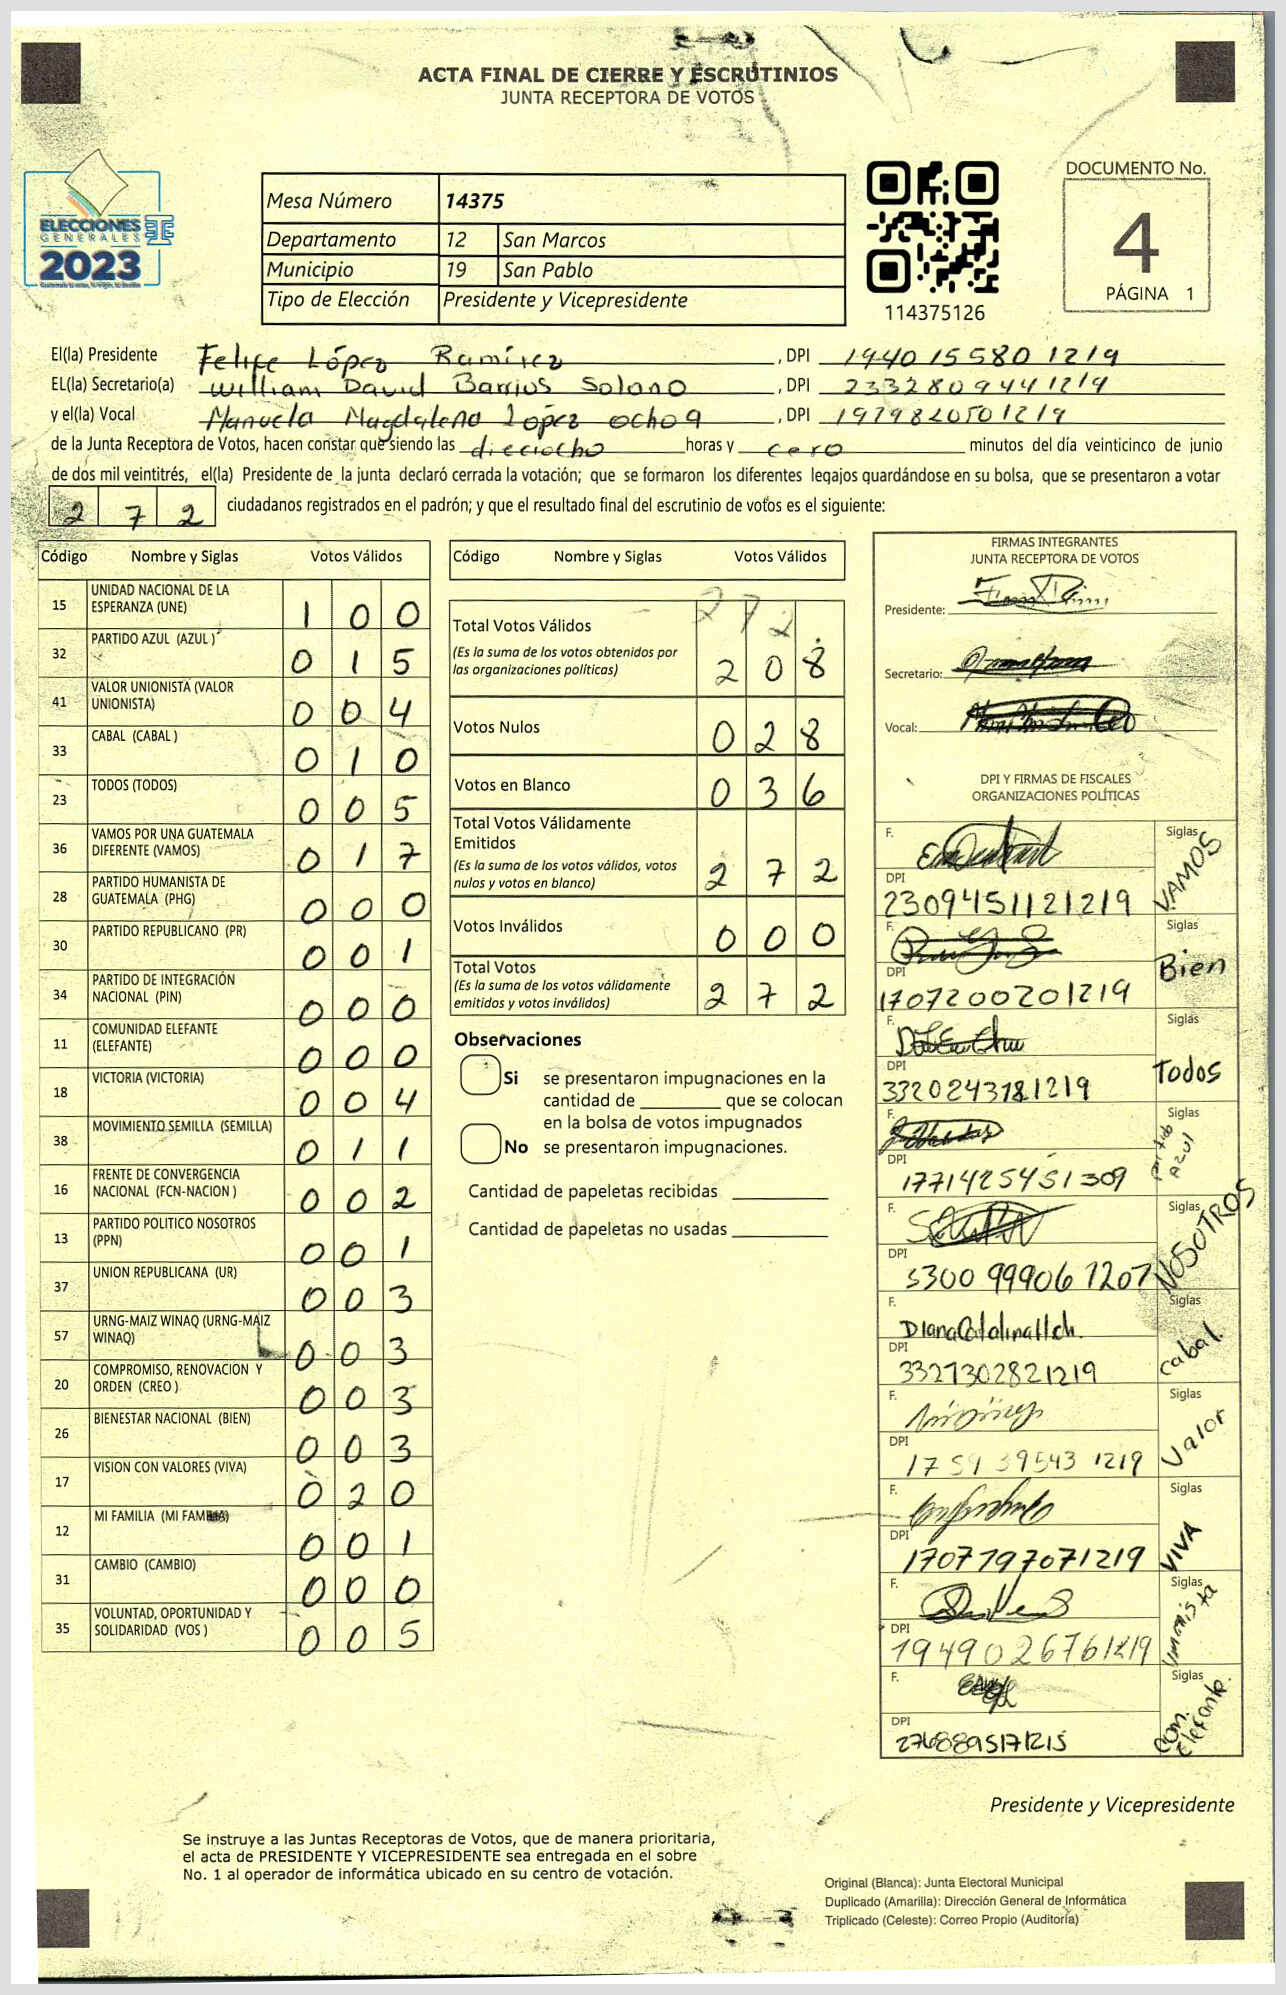 ACTA FINAL DE CIERRE Y ESCRUTINIOS
JUNTA RECEPTORA DE VOTOS
ELECCIONES
GENERALES
2023
Mesa Número 14375
Departamento 12 San Marcos
Municipio 19 San Pablo
Tipo de Elección Presidente y Vicepresidente
114375126
DOCUMENTO No.
4
PÁGINA 1
El(la) Presidente Felipe López Ramírez, DPI 1940155801219
EL(la) Secretario(a) William David Barrios Solano, DPI 2332809441219
y el(la) Vocal Manuela Magdalena López Ochoa, DPI 1979820501219
de la Junta Receptora de Votos, hacen constar que siendo las dieciocho horas y cero minutos del día veinticinco de junio
de dos mil veintitrés, el(la) Presidente de la junta declaró cerrada la votación; que se formaron los diferentes legajos guardándose en su bolsa, que se presentaron a votar
272 ciudadanos registrados en el padrón; y que el resultado final del escrutinio de votos es el siguiente:
Código Nombre y Siglas Votos Válidos
15 UNIDAD NACIONAL DE LA ESPERANZA (UNE) 100
32 PARTIDO AZUL (AZUL) 015
41 VALOR UNIONISTA (VALOR UNIONISTA) 004
33 CABAL (CABAL ) 010
23 TODOS (TODOS) 005
36 VAMOS POR UNA GUATEMALA DIFERENTE (VAMOS) 017
28 PARTIDO HUMANISTA DE GUATEMALA (PHG) 000
30 PARTIDO REPUBLICANO (PR) 001
34 PARTIDO DE INTEGRACIÓN NACIONAL (PIN) 000
11 COMUNIDAD ELEFANTE (ELEFANTE) 000
18 VICTORIA (VICTORIA) 004
38 MOVIMIENTO SEMILLA (SEMILLA) 011
16 FRENTE DE CONVERGENCIA NACIONAL (FCN-NACION ) 002
13 PARTIDO POLITICO NOSOTROS (PPN) 001
37 UNION REPUBLICANA (UR) 003
57 URNG-MAIZ WINAQ (URNG-MAIZ WINAQ) 003
20 COMPROMISO, RENOVACION Y ORDEN (CREO ) 003
26 BIENESTAR NACIONAL (BIEN) 003
17 VISION CON VALORES (VIVA) 020
12 MI FAMILIA (MI FAMILIA) 001
31 CAMBIO (CAMBIO) 000
35 VOLUNTAD, OPORTUNIDAD Y SOLIDARIDAD (VOS ) 005
Código Nombre y Siglas Votos Válidos
272
Total Votos Válidos 208
(Es la suma de los votos obtenidos por las organizaciones políticas)
Votos Nulos 028
Votos en Blanco 036
Total Votos Válidamente Emitidos 272
(Es la suma de los votos válidos, votos nulos y votos en blanco)
Votos Inválidos 000
Total Votos 272
(Es la suma de los votos válidamente emitidos y votos inválidos)
Observaciones
Si se presentaron impugnaciones en la
cantidad de ________ que se colocan
en la bolsa de votos impugnados
No se presentaron impugnaciones.
Cantidad de papeletas recibidas
Cantidad de papeletas no usadas
FIRMAS INTEGRANTES
JUNTA RECEPTORA DE VOTOS
Presidente:
Secretario:
Vocal:
DPI Y FIRMAS DE FISCALES
ORGANIZACIONES POLÍTICAS
F. Siglas VAMOS
DPI 2309451121219
F. Siglas Bien
DPI 1707200201219
F. Siglas Todos
DPI 3320243181219
F. Siglas partido AZUL
DPI 1771425451309
F. Siglas NOSOTROS
DPI 5300 99906 1207
F. Diana Catalina Siglas cabal.
DPI 3327302821219
F. Siglas Valor
DPI 1759 39543 1219
F. Siglas VIVA
DPI 1707797071219
F. Siglas Unionista
DPI 1949026761219
F. Siglas com. Elefante.
DPI 2768895171215
Presidente y Vicepresidente
Se instruye a las Juntas Receptoras de Votos, que de manera prioritaria,
el acta de PRESIDENTE Y VICEPRESIDENTE sea entregada en el sobre
No. 1 al operador de informática ubicado en su centro de votación.
Original (Blanca): Junta Electoral Municipal
Duplicado (Amarilla): Dirección General de Informática
Triplicado (Celeste): Correo Propio (Auditoría)